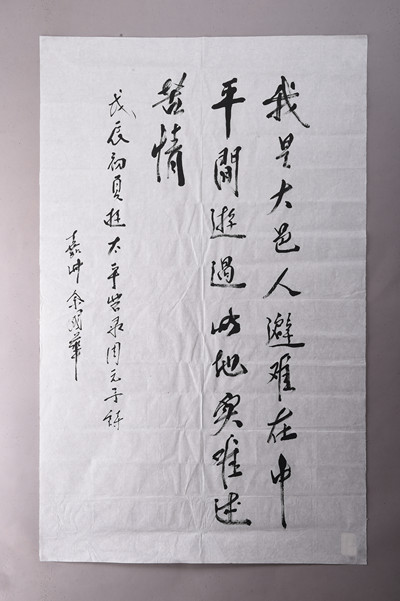 我是大邑人避难在中
平間遊過此地实难述
苦情
戊辰初夏於太平岩录周元子詩
嘉州余華